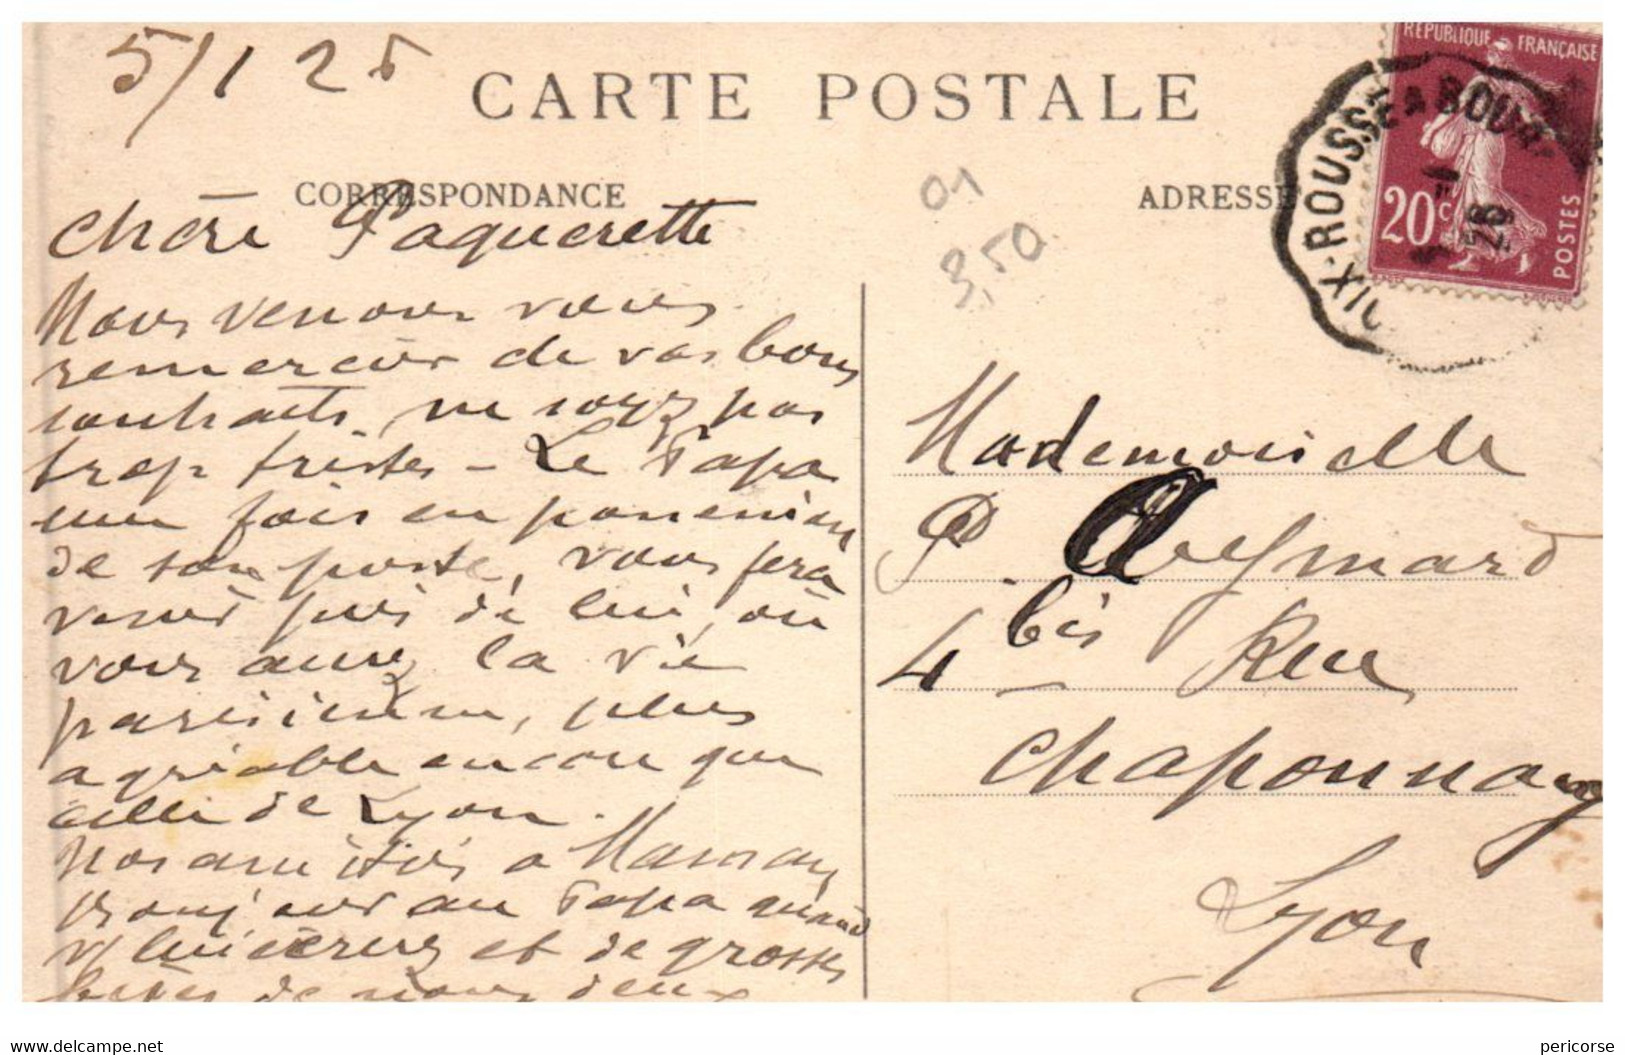 5/1 28
CARTE POSTALE
CORRESPONDANCE
ADRESSE
REPUBLIQUE FRANÇAISE
20c
POSTES
X-ROUSSE A BOURG
28
01
3,50
chère Paquerette
Nous venons vous
remercier de vos bons
souhaits, ne soyez pas
trop tristes - Le Papa
une fois en possession
de son poste, vous fera
venir près de lui, où
vous aurez la vie
parisienne, plus
agréable encore que
celle de Lyon.
nos amitiés à Maman
bonjour au Papa quand
v/ lui écrirez et de grosses
bises de nous deux
Mademoiselle
P. Aveymard
4 bis Rue
Chaponnay
Lyon
delcampe.net
pericorse